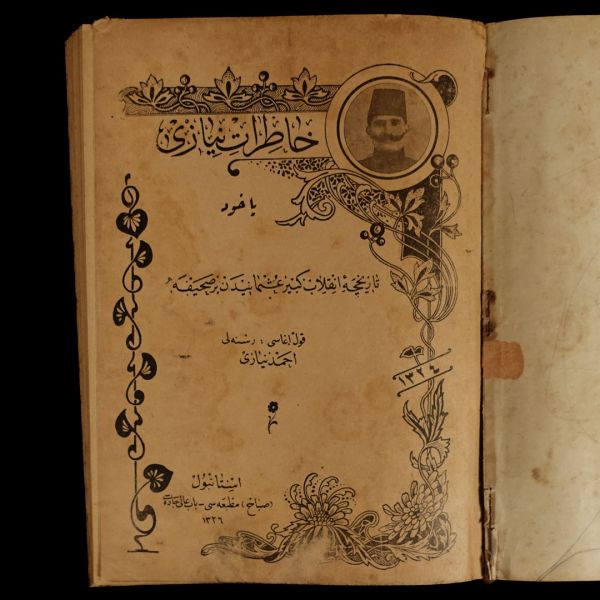 خاطرات نیازی
یاخود
تاریخچهٔ انقلاب کبیر عثمانیدن بر صحیفه
قول اغاسی : رسنه لی
احمد نیازی
١٣٢٤
استانبول
(صباح) مطبعه سی - باب عالی جاده سی
١٣٢٦